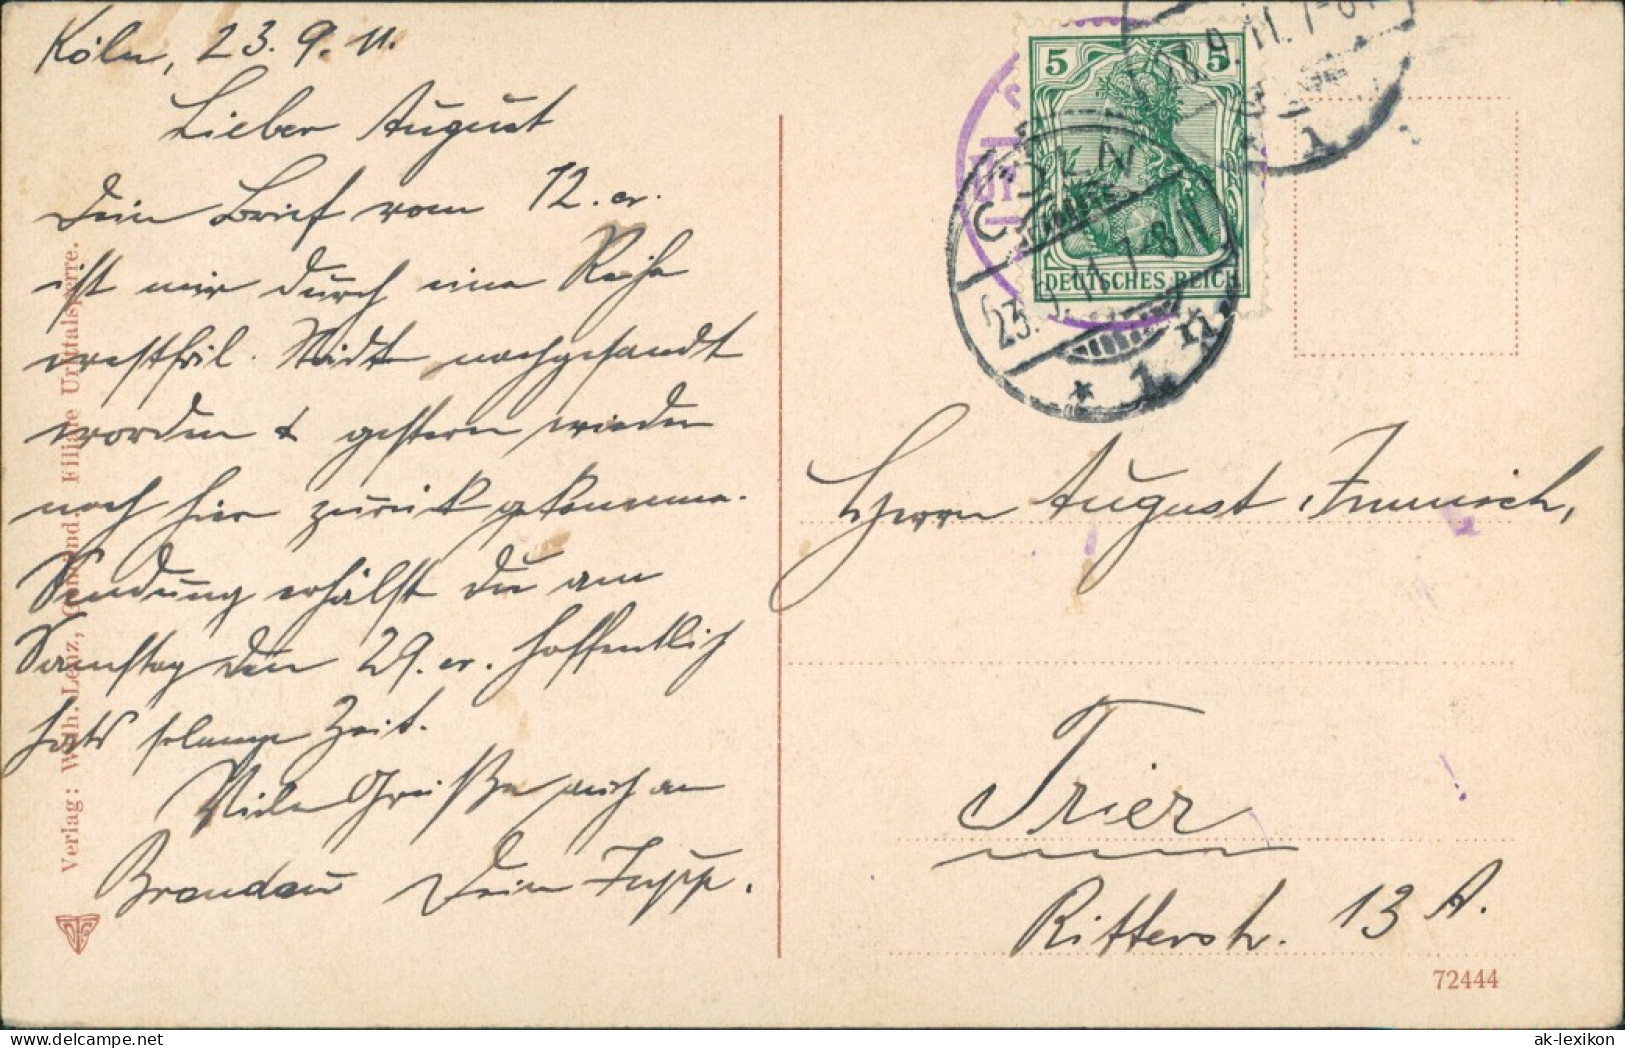 Köln, 23.9.11.
Lieber August
Dein Brief vom 12. cr.
ist mir durch eine Reihe
westfäl. Städte nachgesandt
worden & gestern wieder
nach hier zurück gekommen.
Sendung erhälst Du am
Samstag den 29. cr. hoffentlich
hats solange Zeit.
Viele Grüße auch an
Dein Jupp.
Verlag: Wilh. Lenz, Gemünd, Filiale Urfttalsperre.
5 5
DEUTSCHES REICH
CÖLN
23.9.11.7-8N
* 1 n.
9.11.7-8
1
Herrn August Immisch,
Trier
Ritterstr. 13 A.
72444
ak-lexikon